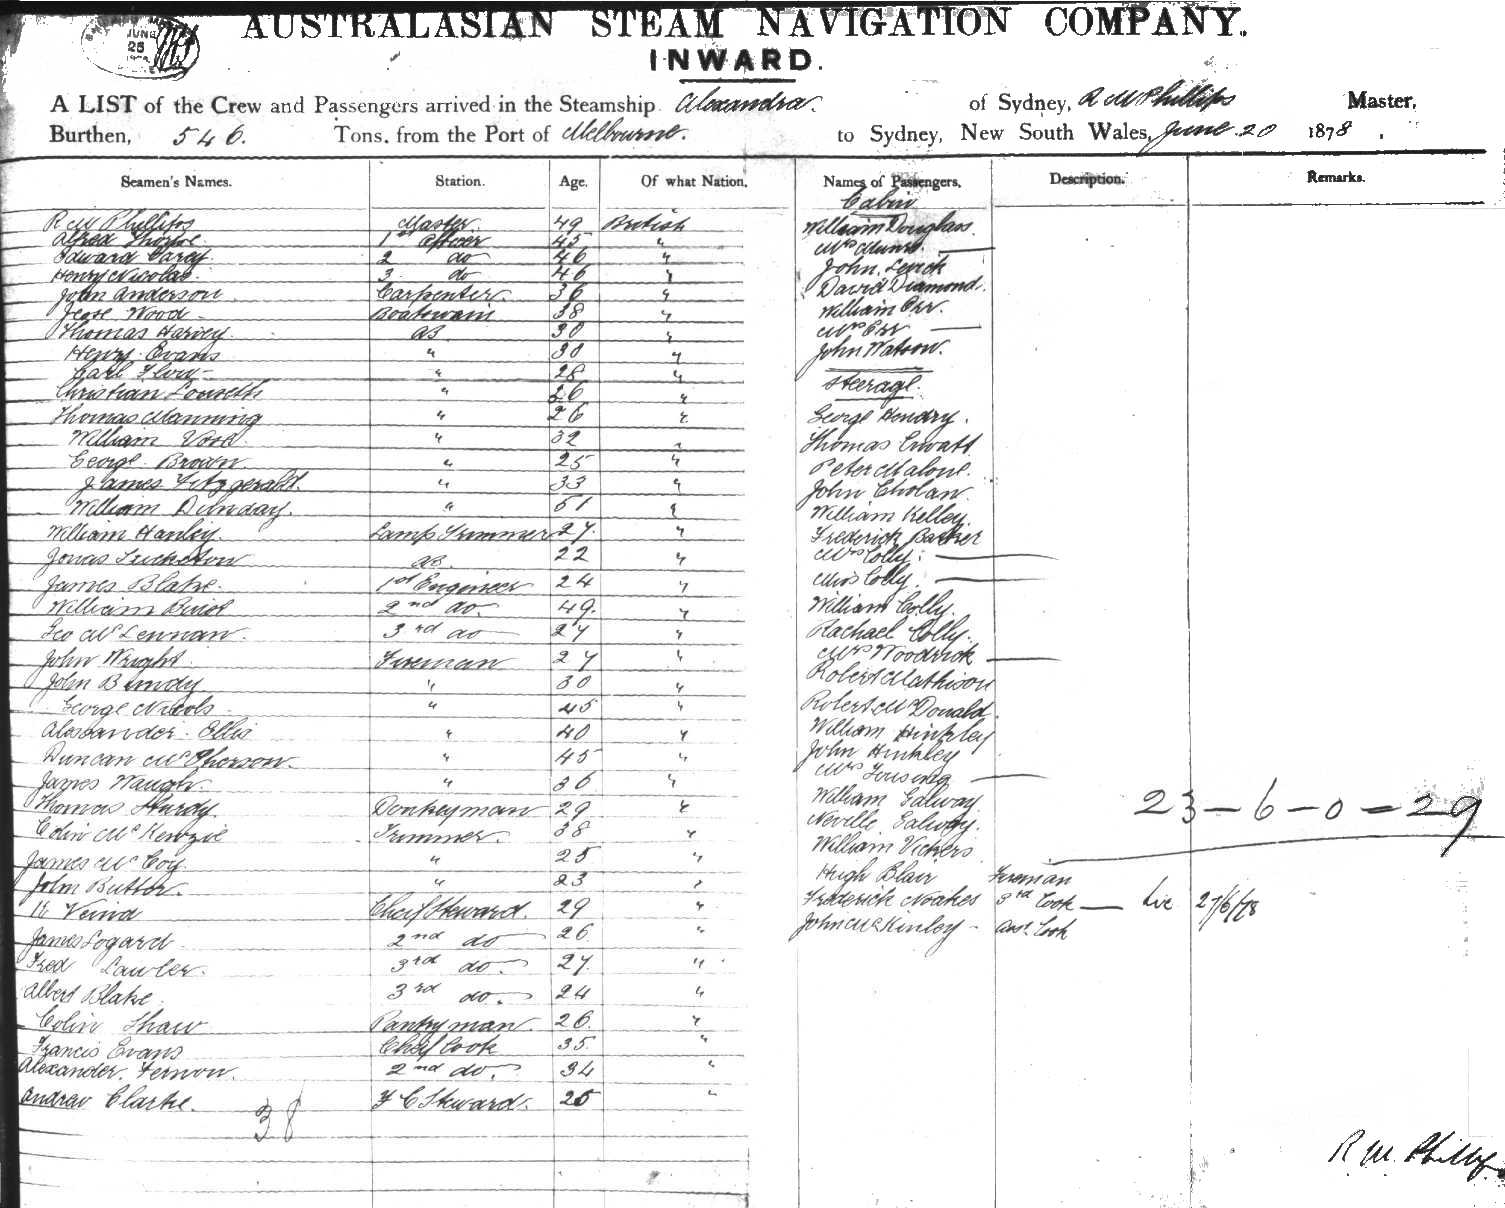 JUNE
25
AUSTRALASIAN STEAM NAVIGATION COMPANY.
INWARD.
A LIST of the Crew and Passengers arrived in the Steamship Alexandra. of Sydney, R M Phillips Master,
Burthen, 546. Tons, from the Port of Melbourne. to Sydney, New South Wales, June 20 1878.
Seamen's Names. Station. Age. Of what Nation.
R M Phillips Master 49 British
Alfred Thorpe 1st Officer 45 "
Edward Carey 2 do 46 "
Henry Nicolas 3 do 46 "
John Anderson Carpenter. 36 "
Jesse Wood Boatswain 38 "
Thomas Harvey AB 30 "
Henry Evans " 30 "
Carl " 28 "
Christian " 26 "
Thomas Manning " 26 "
William " 32 "
George Brown " 25 "
James Fitzgerald. " 33 "
William Dunday. " 51 "
William Hanley. Lamp Trimmer 27. "
Jonas AB. 22 "
James Blake 1st Engineer 24 "
William 2nd do. 49. "
Geo McLennan. 3rd do 27 "
John Wright Fireman 27 "
John Bundy " 30 "
George Nicols " 45 "
Alexander Ellis " 40 "
Duncan McPherson. " 45 "
James Waugh. " 36 "
Thomas Hurdy. Donkeyman 29 "
Colin McKenzie Trimmer. 38 "
James McCoy " 25 "
John Butter. " 23 "
Chief Steward. 29 "
James Logard 2nd do 26 "
Fred Lawler. 3rd do. 27. "
Albert Blake. 3rd do. 24 "
Colin Shaw Pantryman. 26. "
Francis Evans Chief Cook 35 "
Alexander Vernon. 2nd do. 34 "
Andrew Clarke. F C Steward. 25 "
38
Names of Passengers. Description. Remarks.
Cabin
William Douglass.
Mrs Munro.
John Levick
David Diamond.
William Orr.
Mrs Orr
John Watson.
Steerage.
George Hendry.
Thomas Ewatt
Peter Malone.
John Cholan
William Kelley.
Frederick Barker
Mrs Colly.
Miss Colly.
William Colly.
Rachael Colly.
Mrs Woodrick
Robert Mathison
Robert McDonald.
William Hinkley
John Hinkley
Mrs
William Galway.
Neville Galway.
William Vickers
23 - 6 - 0 = 29
Hugh Blair Fireman
Frederick Noakes 3rd Cook 27/6/78
John McKinley - Asst Cook
R. M. Phillips